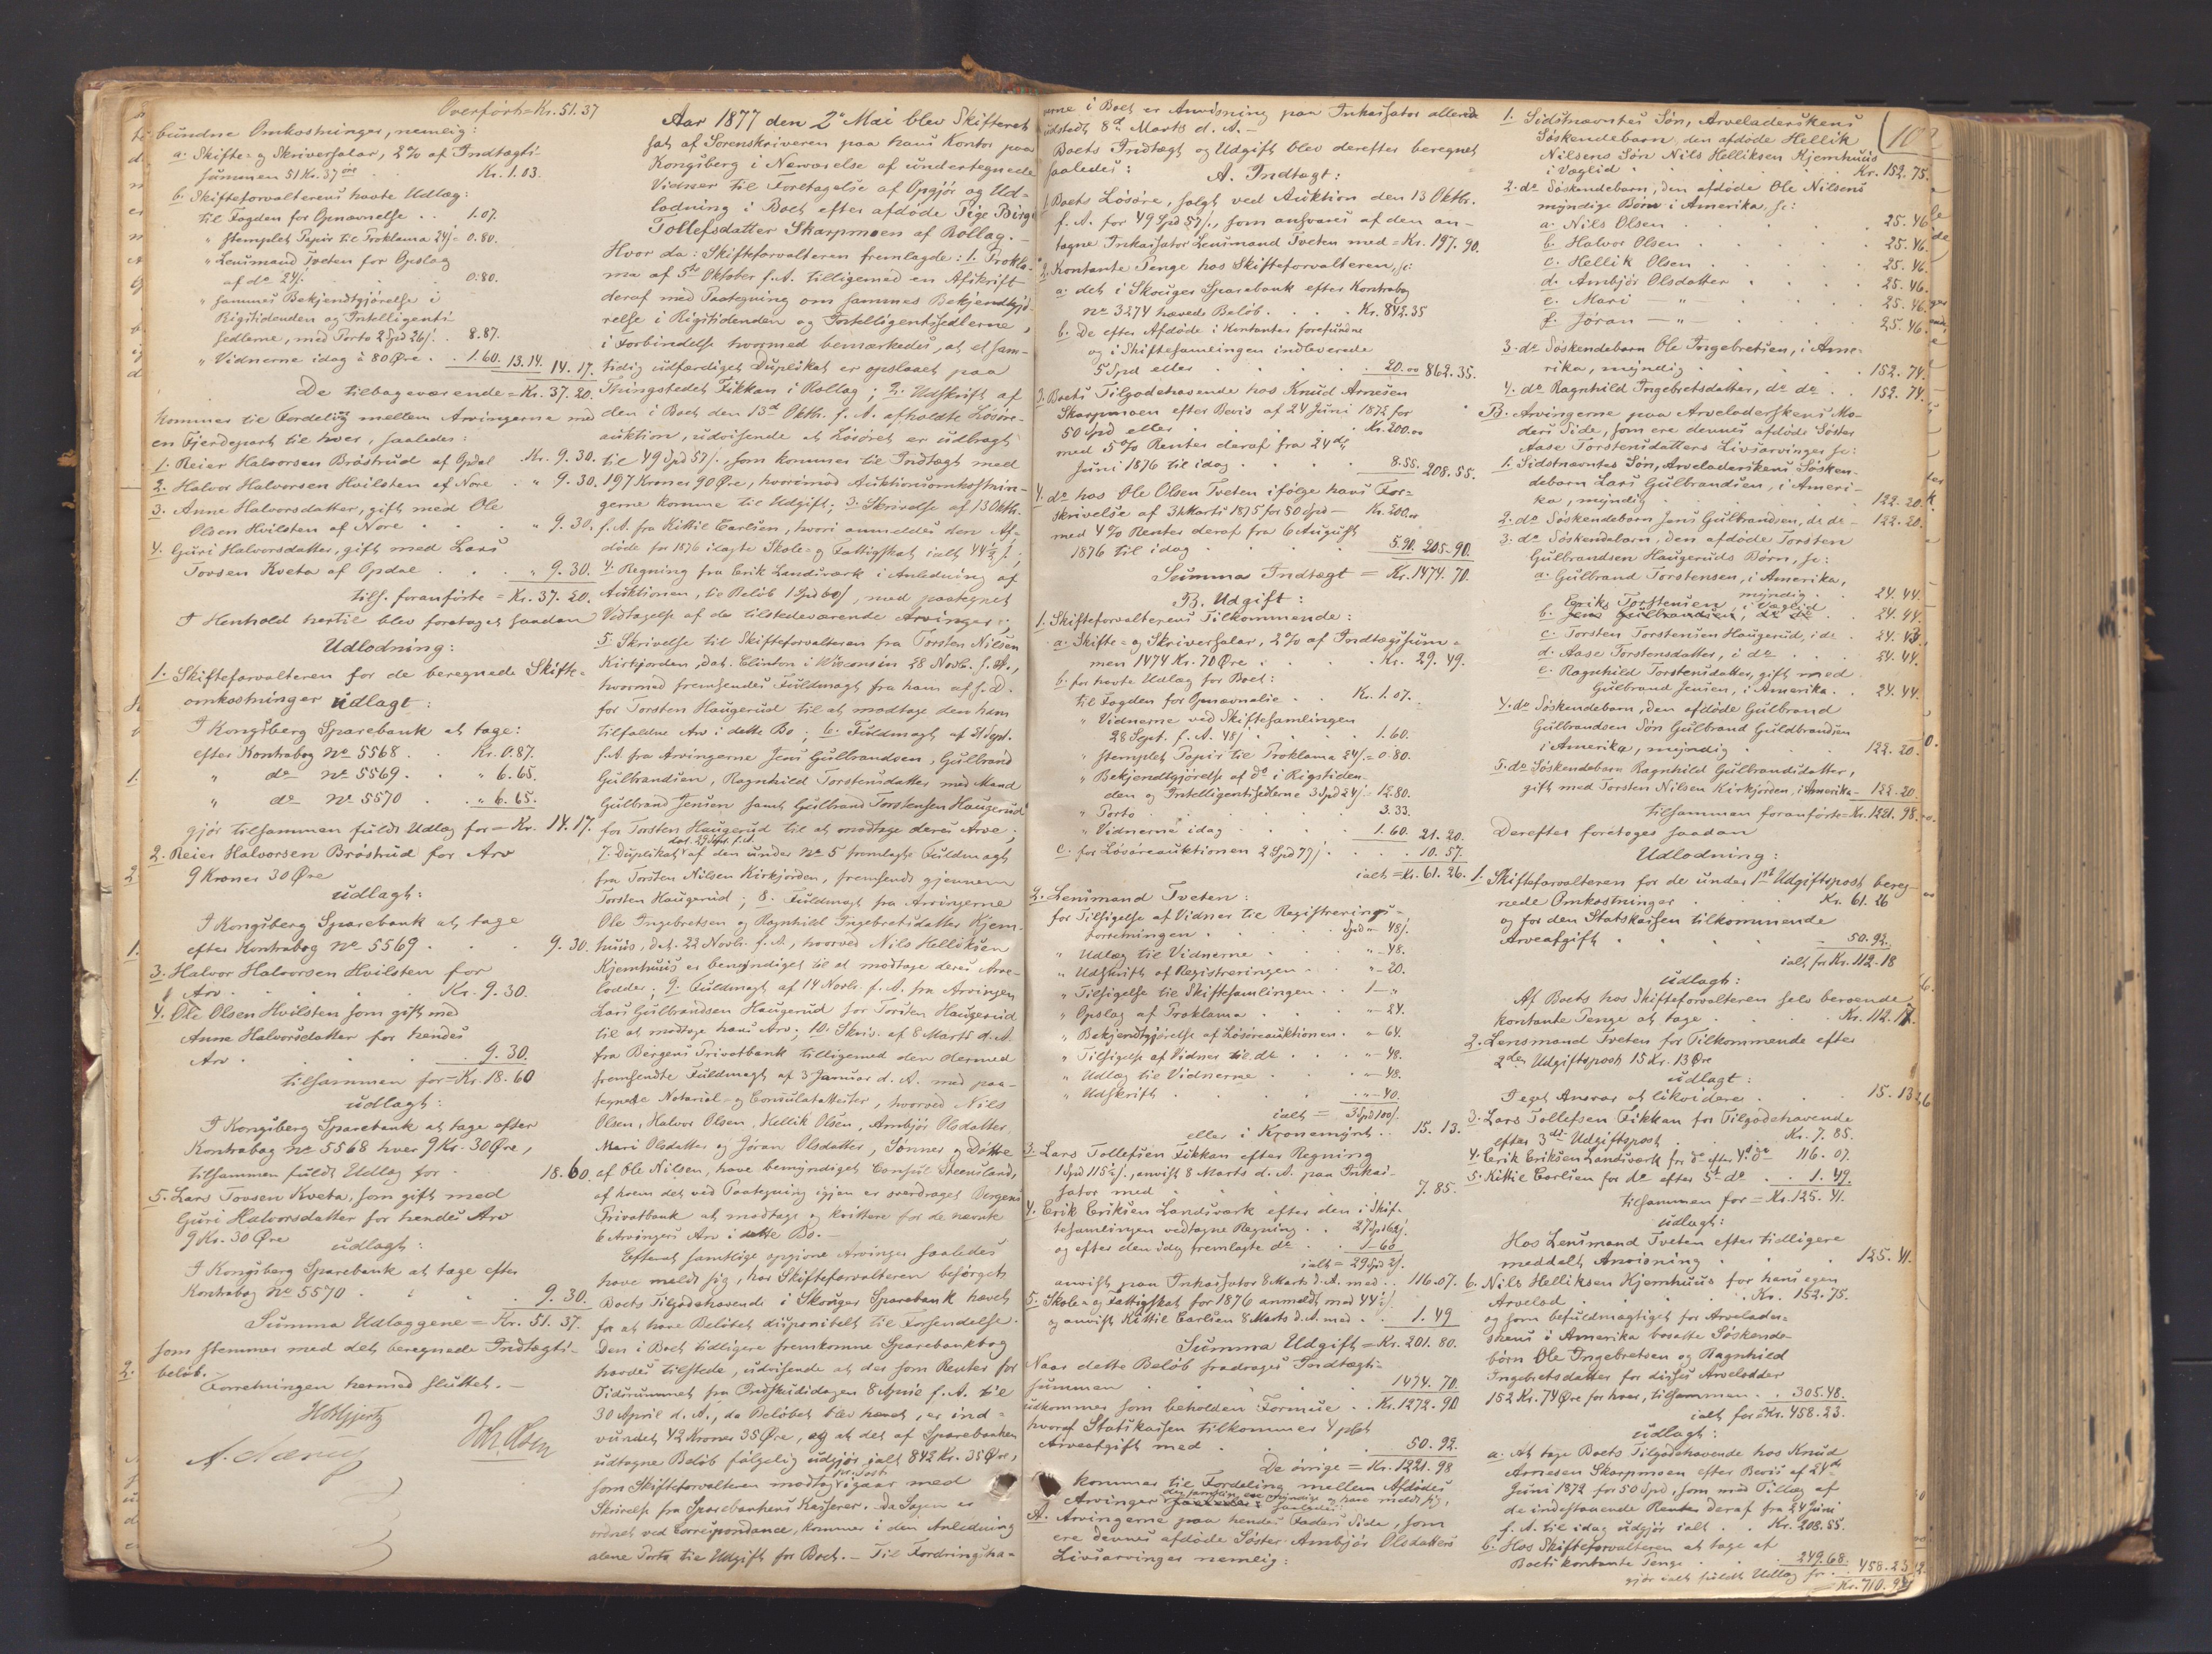 Overført = Kr. 51.37
bundne Omkostninger, nemlig:
a. Skifte- og Skriversalar, 2 % af Indtægts-
summen 51 Kr. 37 Øre . . Kr. 1.03.
b. Skifteforvalterens havte Udlæg:
til Fogden for Opnævnelse . . 1.07.
" stemplet Papir til Proklama 24 s = 0.80.
" Lensmand Tveten for Opslag
af do 24 s. . . . 0.80.
" sammes Bekjendtgjørelse i
Rigstidenden og Intelligents-
sedlerne, med Porto 2 Spd 26 s. . 8.87.
" Vidnerne idag à 80 Øre . . 1.60. 13.14. 14.17.
De tilbageværende = Kr. 37.20.
kommer til Fordeling mellem Arvingerne med
en Fjerdepart til hver, saaledes:
1. Reier Halvorsen Bröstrud af Opdal . Kr. 9.30.
2. Halvor Halvorsen Hvilsten af Nore . " 9.30.
3. Anne Halvorsdatter, gift med Ole
Olsen Hvilsten af Nore . . . " 9.30.
4. Guri Halvorsdatter, gift med Lars
Tovsen Kveta af Opdal . . . " 9.30.
tils. foranførte = Kr. 37.20.
I Henhold hertil blev foretaget saadan
Udlodning:
1. Skifteforvalteren for de beregnede Skifte-
omkostninger udlagt:
I Kongsberg Sparebank at tage:
efter Kontrabog No 5568 . . Kr. 0.87.
" do No 5569 . . " 6.65.
" do No 5570 . . " 6.65.
gjør tilsammen fuldt Udlæg for = Kr. 14.17.
2. Reier Halvorsen Bröstrud for Arv
9 Kroner 30 Øre
udlagt:
I Kongsberg Sparebank at tage
efter Kontrabog No 5569 . . . 9.30.
3. Halvor Halvorsen Hvilsten for
Arv . . . . Kr. 9.30.
4. Ole Olsen Hvilsten som gift med
Anne Halvorsdatter for hendes
Arv . . . . 9.30.
tilsammen for = Kr. 18.60
udlagt:
I Kongsberg Sparebank at tage efter
Kontrabog No 5568 hver 9 Kr. 30 Øre,
tilsammen fuldt Udlæg for . . 18.60.
5. Lars Tovsen Kveta, som gift med
Guri Halvorsdatter for hendes Arv
9 Kr. 30 Øre udlagt:
I Kongsberg Sparebank at tage efter
Kontrabog No 5570 . . . . 9.30.
Summa Udlæggene = Kr. 51.37.
som stemmer med det beregnede Indtægts-
beløb.
Forretningen hermed sluttet. —
Joh. Olsen
Aar 1877 den 2 Mai blev Skifteret
sat af Sorenskriveren paa hans Kontor paa
Kongsberg i Nærværelse af undertegnede
Vidner til Foretagelse af Opgjør og Ud-
lodning i Boet efter afdøde Pige Birgit
Tollefsdatter Skarpmoen af Rollag. —
Hvor da: Skifteforvalteren fremlagde: 1. Prokla-
ma af 5te Oktober f. A. tilligemed en Afskrift
deraf med Paategning om sammes Bekjendtgjø-
relse i Rigstidenden og Intelligentssedlerne,
i Forbindelse hvormed bemærkedes, at et sam-
tidig udfærdiget Duplikat er opslaaet paa
Thingstedet Fikkan i Rollag; 2. Udskrift af
den i Boet den 13de Oktbr. f. A. afholdte Løsøre-
auktion, udvisende at Løsøret er udbragt
til 49 Spd 57 s., som kommer til Indtægt med
197 Kroner 90 Øre, hvorimod Auktionsomkostnin-
gerne komme til Udgift; 3. Skrivelse af 13 Oktbr.
f. A. fra Kittil Carlsen, hvori anmeldes den Af-
døde for 1876 ilagte Skole- og Fattigskat ialt 44½ s.;
4. Regning fra Erik Landsværk i Anledning af
Auktionen, til Beløb 1 Spd 60 s, med paategnet
Vedtagelse af de tilstedeværende Arvinger;
5. Skrivelse til Skifteforvalteren fra Torsten Nilsen
Kirkjorden, dat. Clinton i Wisconsin 28 Novb. f. A.,
hvormed fremsendes Fuldmagt fra ham af s. D.
for Torsten Haugerud til at modtage den ham
tilfaldne Arv i dette Bo; 6. Fuldmagt af 21 Sept.
f. A. fra Arvingerne Jens Gulbrandsen, Gulbrand
Gulbrandsen, Ragnhild Torstensdatter med Mand
Gulbrand Jensen samt Gulbrand Torstensen Haugerud
for Torsten Haugerud til at modtage deres Arve;
7. Duplikat dat. 29 Sept. f. A. af den under No 5 fremlagte Fuldmagt
fra Torsten Nilsen Kirkjorden, fremsendt gjennem
Torsten Haugerud; 8. Fuldmagt fra Arvingerne
Ole Ingebretsen og Ragnhild Ingebretsdatter Kjem-
huus, dat. 22 Novbr. f. A., hvorved Nils Helliksen
Kjemhuus er bemyndiget til at modtage deres Arve-
lodder; 9. Fuldmagt af 14 Novbr. f. A. fra Arvingen
Lars Gulbrandsen Haugerud for Torsten Haugerud
til at modtage hans Arv; 10. Skriv. af 8 Marts d. A.
fra Bergens Privatbank tilligemed den dermed
fremsendte Fuldmagt af 3 Januar d. A. med paa-
tegnede Notarial- og Consulatattester, hvorved Nils
Olsen, Halvor Olsen, Hellik Olsen, Ambjør Olsdatter,
Mari Olsdatter og Jøran Olsdatter, Sønner og Døttre
af Ole Nilsen, have bemyndiget Consul Steensland,
af hvem det ved Paategning igjen er overdraget Bergens
Privatbank at modtage og kvittere for de nævnte
6 Arvingers Arv i dette Bo. —
Efterat samtlige opgivne Arvinger saaledes
have meldt sig, har Skifteforvalteren besørget
Boets Tilgodehavende i Skouger Sparebank hævet
for at have Beløbet disponibelt til Forsendelse.
Den i Boet tidligere fremkomne Sparebankbog
havdes tilstede, udvisende at der som Renter for
Tidsrummet fra Indskudsdagen 8 April f. A. til
30 April d. A., da Beløbet blev hævet, er ind-
vundet 42 Kroner 35 Øre, og at det af Sparebanken
udtagne Beløb følgelig udgjør ialt 842 Kr. 35 Øre,
som Skifteforvalteren modtog pr. Post igaar med
Skrivelse fra Sparebankens Kasserer. Da Sagen er
ordnet ved Correspondance, kommer i den Anledning
alene Porto til Udgift for Boet. — Til Fordringsha-
verne i Boet er Anvisning paa Inkassator allerede
udstedt 8de Marts d. A. —
Boets Indtægt og Udgift blev derefter beregnet
saaledes:
A. Indtægt:
1. Boets Løsøre, solgt ved Auktion den 13 Oktbr.
f. A. for 49 Spd 57 s., som ansvares af den an-
tagne Inkassator Lensmand Tveten med = Kr. 197.90.
2. Kontante Penge hos Skifteforvalteren, sc:
a. det i Skouger Sparebank efter Kontrabog
No 3274 hævede Beløb . . . Kr. 842.35
b. De efter Afdøde i Kontanter forefundne
og i Skiftesamlingen indleverede
5 Spd eller . . . . 20.00 862.35.
3. Boets Tilgodehavende hos Knud Arnesen
Skarpmoen efter Bevis af 24 Juni 1872 for
50 Spd eller . . . . Kr. 200.00
med 5 % Renter deraf fra 24de
Juni 1876 til idag . . . 8.55. 208.55.
4. do hos Ole Olsen Tveten ifølge hans For-
skrivelse af 31 Marts 1875 for 50 Spd — Kr. 200.00
med 4 % Renter deraf fra 6 August
1876 til idag . . . . 5.90. 205.90.
Summa Indtægt = Kr. 1474.70.
B. Udgift:
1. Skifteforvalterens Tilkommende:
a. Skifte- og Skriversalar, 2 % af Indtægtssum-
men 1474 Kr. 70 Øre . . . Kr. 29.49.
b. for havte Udlæg for Boet:
til Fogden for Opnævnelse . . Kr. 1.07.
" Vidnerne ved Skiftesamlingen
28 Sept. f. A. 48 s . . . 1.60.
" stemplet Papir til Proklama 24 s. = 0.80.
" Bekjendtgjørelse af do i Rigstiden-
den og Intelligentssedlerne 3 Spd 24 s. = 12.80.
" Porto . . . . 3.33.
" Vidnerne idag . . . 1.60. 21.20.
c. for Løsøreauktionen 2 Spd 77 s . . 10.57.
ialt = Kr. 61.26.
2. Lensmand Tveten:
for Tilsigelse af Vidner til Registrerings-
forretningen . . . Spd " 48 s.
" Udlæg til Vidnerne . . " - 48.
" Udskrift af Registreringen . . " - 20.
" Tilsigelse til Skiftesamlingen . . 1 - "
" Opslag af Proklama . . " - 24.
" Bekjendtgjørelse af Løsøreauktionen . " - 64.
" Tilsigelse af Vidner til do . . " - 48.
" Udlæg til Vidnerne . . . " - 48.
" Udskrift . . . . " - 40.
ialt = 3 Spd 100 s.
eller i Kronemynt . . 15.13.
3. Lars Tollefsen Fikkan efter Regning
1 Spd 115½ s., anvist 8 Marts d. A. paa Inkas-
sator med . . . . 7.85.
4. Erik Eriksen Landsværk efter den i Skif-
tesamlingen vedtagne Regning . . 27 Spd 62 s.
og efter den idag fremlagte do . . 1 - 60
ialt = 29 Spd 2 s.
anvist paa Inkassator 8 Marts d. A. med . . 116.07.
5. Skole- og Fattigskat for 1876 anmeldt med 44½ s.
og anvist Kittil Carlsen 8 Marts d. A. med . . 1.49
Summa Udgift = Kr. 201.80.
Naar dette Beløb fradrages Indtægts-
summen . . . . 1474.70.
udkommer som beholden Formue . . Kr. 1272.90
hvoraf Statskassen tilkommer 4 pCt
Arveafgift med . . . . 50.92.
De øvrige = Kr. 1221.98
kommer til Fordeling mellem Afdødes
Arvinger, der samtlige ere myndige og have meldt sig,
saaledes:
A. Arvingerne paa hendes Faders Side, som
ere dennes afdøde Søster Ambjør Olsdatters
Livsarvinger nemlig:
102
1. Sidstnævntes Søn, Arveladerskens
Søskendebarn, den afdøde Hellik
Nilsens Søn Nils Helliksen Kjemhuus
i Væglid . . . . Kr. 152.75.
2. do Søskendebarn, den afdøde Ole Nilsens
myndige Børn i Amerika, sc:
a. Nils Olsen . . . . 25.46
b. Halvor Olsen . . . . 25.46.
c. Hellik Olsen . . . . 25.46.
d. Ambjør Olsdatter . . . 25.46.
e. Mari — " — . . . 25.46.
f. Jøran — " — . . . 25.46.
3. do Søskendebarn Ole Ingebretsen, i Ame-
rika, myndig . . . . 152.74.
4. do Ragnhild Ingebretsdatter, do do . . 152.74.
B. Arvingerne paa Arveladerskens Mo-
ders Side, som ere dennes afdøde Søster
Aase Torstensdatters Livsarvinger sc:
1. Sidstnævntes Søn, Arveladerskens Søsken-
debarn Lars Gulbrandsen, i Ameri-
ka, myndig . . . . 122.20.
2. do Søskendebarn Jens Gulbrandsen, do do — 122.20.
3. do Søskendebarn, den afdøde Torsten
Gulbrandsen Haugeruds Børn, sc:
a. Gulbrand Torstensen, i Amerika,
myndig . . 24.44.
Erik Torstensen, i Væglid
b. Jens Gulbrandsen, do do . . 24.44.
c. Torsten Torstensen Haugerud, i do . 24.43.
d. Aase Torstensdatter, i do . . 24.44.
e. Ragnhild Torstensdatter, gift med
Gulbrand Jensen, i Amerika . . 24.44.
4. do Søskendebarn, den afdøde Gulbrand
Gulbrandsen Søn Gulbrand Guldbrandsen
i Amerika, myndig . . . 122.20.
5. do Søskendebarn Ragnhild Gulbrandsdatter,
gift med Torsten Nilsen Kirkjorden, i Amerika — 122.20
tilsammen foranførte = Kr. 1221.98.
Derefter foretoges saadan
Udlodning:
1. Skifteforvalteren for de under 1ste Udgiftspost bereg-
nede Omkostninger . . Kr. 61.26
og for den Statskassen tilkommende
Arveafgift . . . . 50.92.
ialt for Kr. 112.18
udlagt:
Af Boets hos Skifteforvalteren selv beroende
kontante Penge at tage . . . Kr. 112.18.
2. Lensmand Tveten for Tilkommende efter
2den Udgiftspost 15 Kr. 13 Øre
udlagt:
I eget Ansvar at likvidere . . . 15.13
3. Lars Tollefsen Fikkan for Tilgodehavende
efter 3die Udgiftspost . . . Kr. 7.85.
4. Erik Eriksen Landsværk for do efter 4de do 116.07.
5. Kittil Carlsen for do efter 5te do . . 1.49.
tilsammen for = Kr. 125.41.
udlagt:
Hos Lensmand Tveten efter tidligere
meddelt Anvisning . . . 125.41.
6. Nils Helliksen Kjemhuus for hans egen
Arvelod . . . . Kr. 152.75.
og som befuldmægtiget for Arvelader-
skens i Amerika bosatte Søskende-
børn Ole Ingebretsen og Ragnhild
Ingebretsdatter for disses Arvelodder
152 Kr. 74 Øre for hver, tilsammen . . 305.48.
ialt for Kr. 458.23.
udlagt:
a. At tage Boets Tilgodehavende hos Knud
Arnesen Skarpmoen efter Bevis af 24de
Juni 1872 for 50 Spd, som med Tillæg af
de indestaaende Renter deraf fra 24 Juni
f. A. til idag udgjør ialt . . Kr. 208.55.
b. Hos Skifteforvalteren at tage af
Boets kontante Penge . . . 249.68.
gjør ialt fuldt Udlæg for . . 458.23